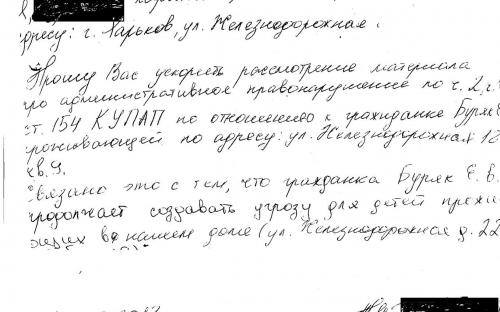 адресу: г. Харьков, ул. Железнодорожная
Прошу Вас ускорить рассмотрение материала
про административное правонарушение по ч. 2,
ст. 154 КУПАП по отношению к гражданке Буряк
проживающей по адресу: ул. Железнодорожная 12
кв. 9.
Связано это с тем, что гражданка Буряк Е. В.
продолжает создавать угрозу для детей
в нашем доме (ул. Железнодорожная д. 22